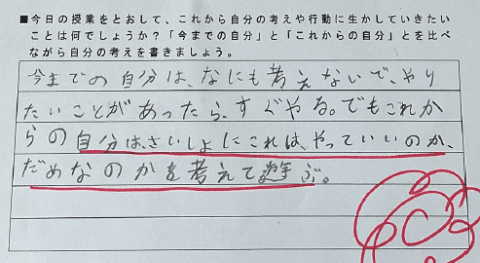 ■今日の授業をとおして、これから自分の考えや行動に生かしていきたい
ことは何でしょうか?「今までの自分」と「これからの自分」とを比べ
ながら自分の考えを書きましょう。
今までの自分は、なにも考えないで、やり
たいことがあったら、すぐやる。でもこれか
らの自分は、さいしよにこれは、やっていいのか、
だめなのかを考えて遊ぶ。